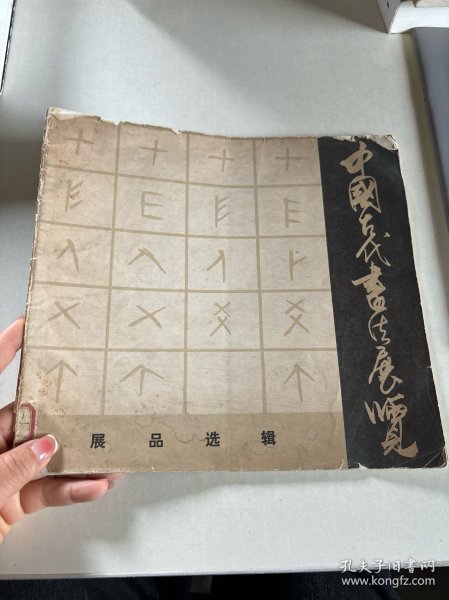 中國古代書法展覽
展品选辑
孔夫子旧书网
www.kongfz.com